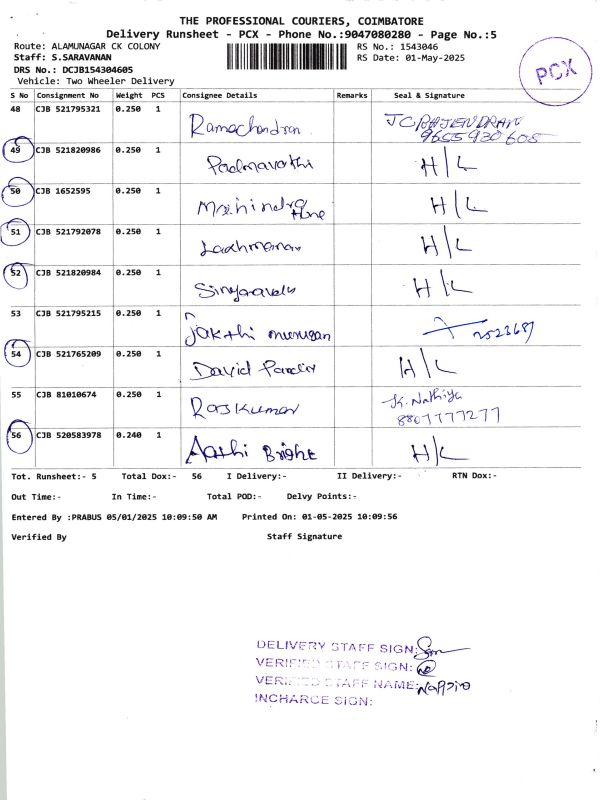 THE PROFESSIONAL COURIERS, COIMBATORE
Delivery Runsheet - PCX - Phone No.:9047080280 - Page No.:5
Route: ALAMUNAGAR CK COLONY
RS No.: 1543046
Staff: S.SARAVANAN
RS Date: 01-May-2025
DRS No.: DCJB154304605
Vehicle: Two Wheeler Delivery
PCX
S No Consignment No Weight PCS Consignee Details Remarks Seal & Signature
48 CJB 521795321 0.250 1 Ramachandran JC RAJENDRAN
9655930605
49 CJB 521820986 0.250 1 Padmavathi H/L
50 CJB 1652595 0.250 1 Mahindra H/L
51 CJB 521792078 0.250 1 Laxhmanan H/L
52 CJB 521820984 0.250 1 Singaravelu H/L
53 CJB 521795215 0.250 1 murugan
54 CJB 521765209 0.250 1 David H/L
55 CJB 81010674 0.250 1 Rajkumar K. Nathiya
8807777277
56 CJB 520583978 0.240 1 Aathi Bright H/L
Tot. Runsheet:- 5 Total Dox:- 56 I Delivery:- II Delivery:- RTN Dox:-
Out Time:- In Time:- Total POD:- Delvy Points:-
Entered By :PRABUS 05/01/2025 10:09:50 AM Printed On: 01-05-2025 10:09:56
Verified By Staff Signature
DELIVERY STAFF SIGN:
VERIFIED STAFF SIGN:
VERIFIED STAFF NAME:
INCHARGE SIGN: